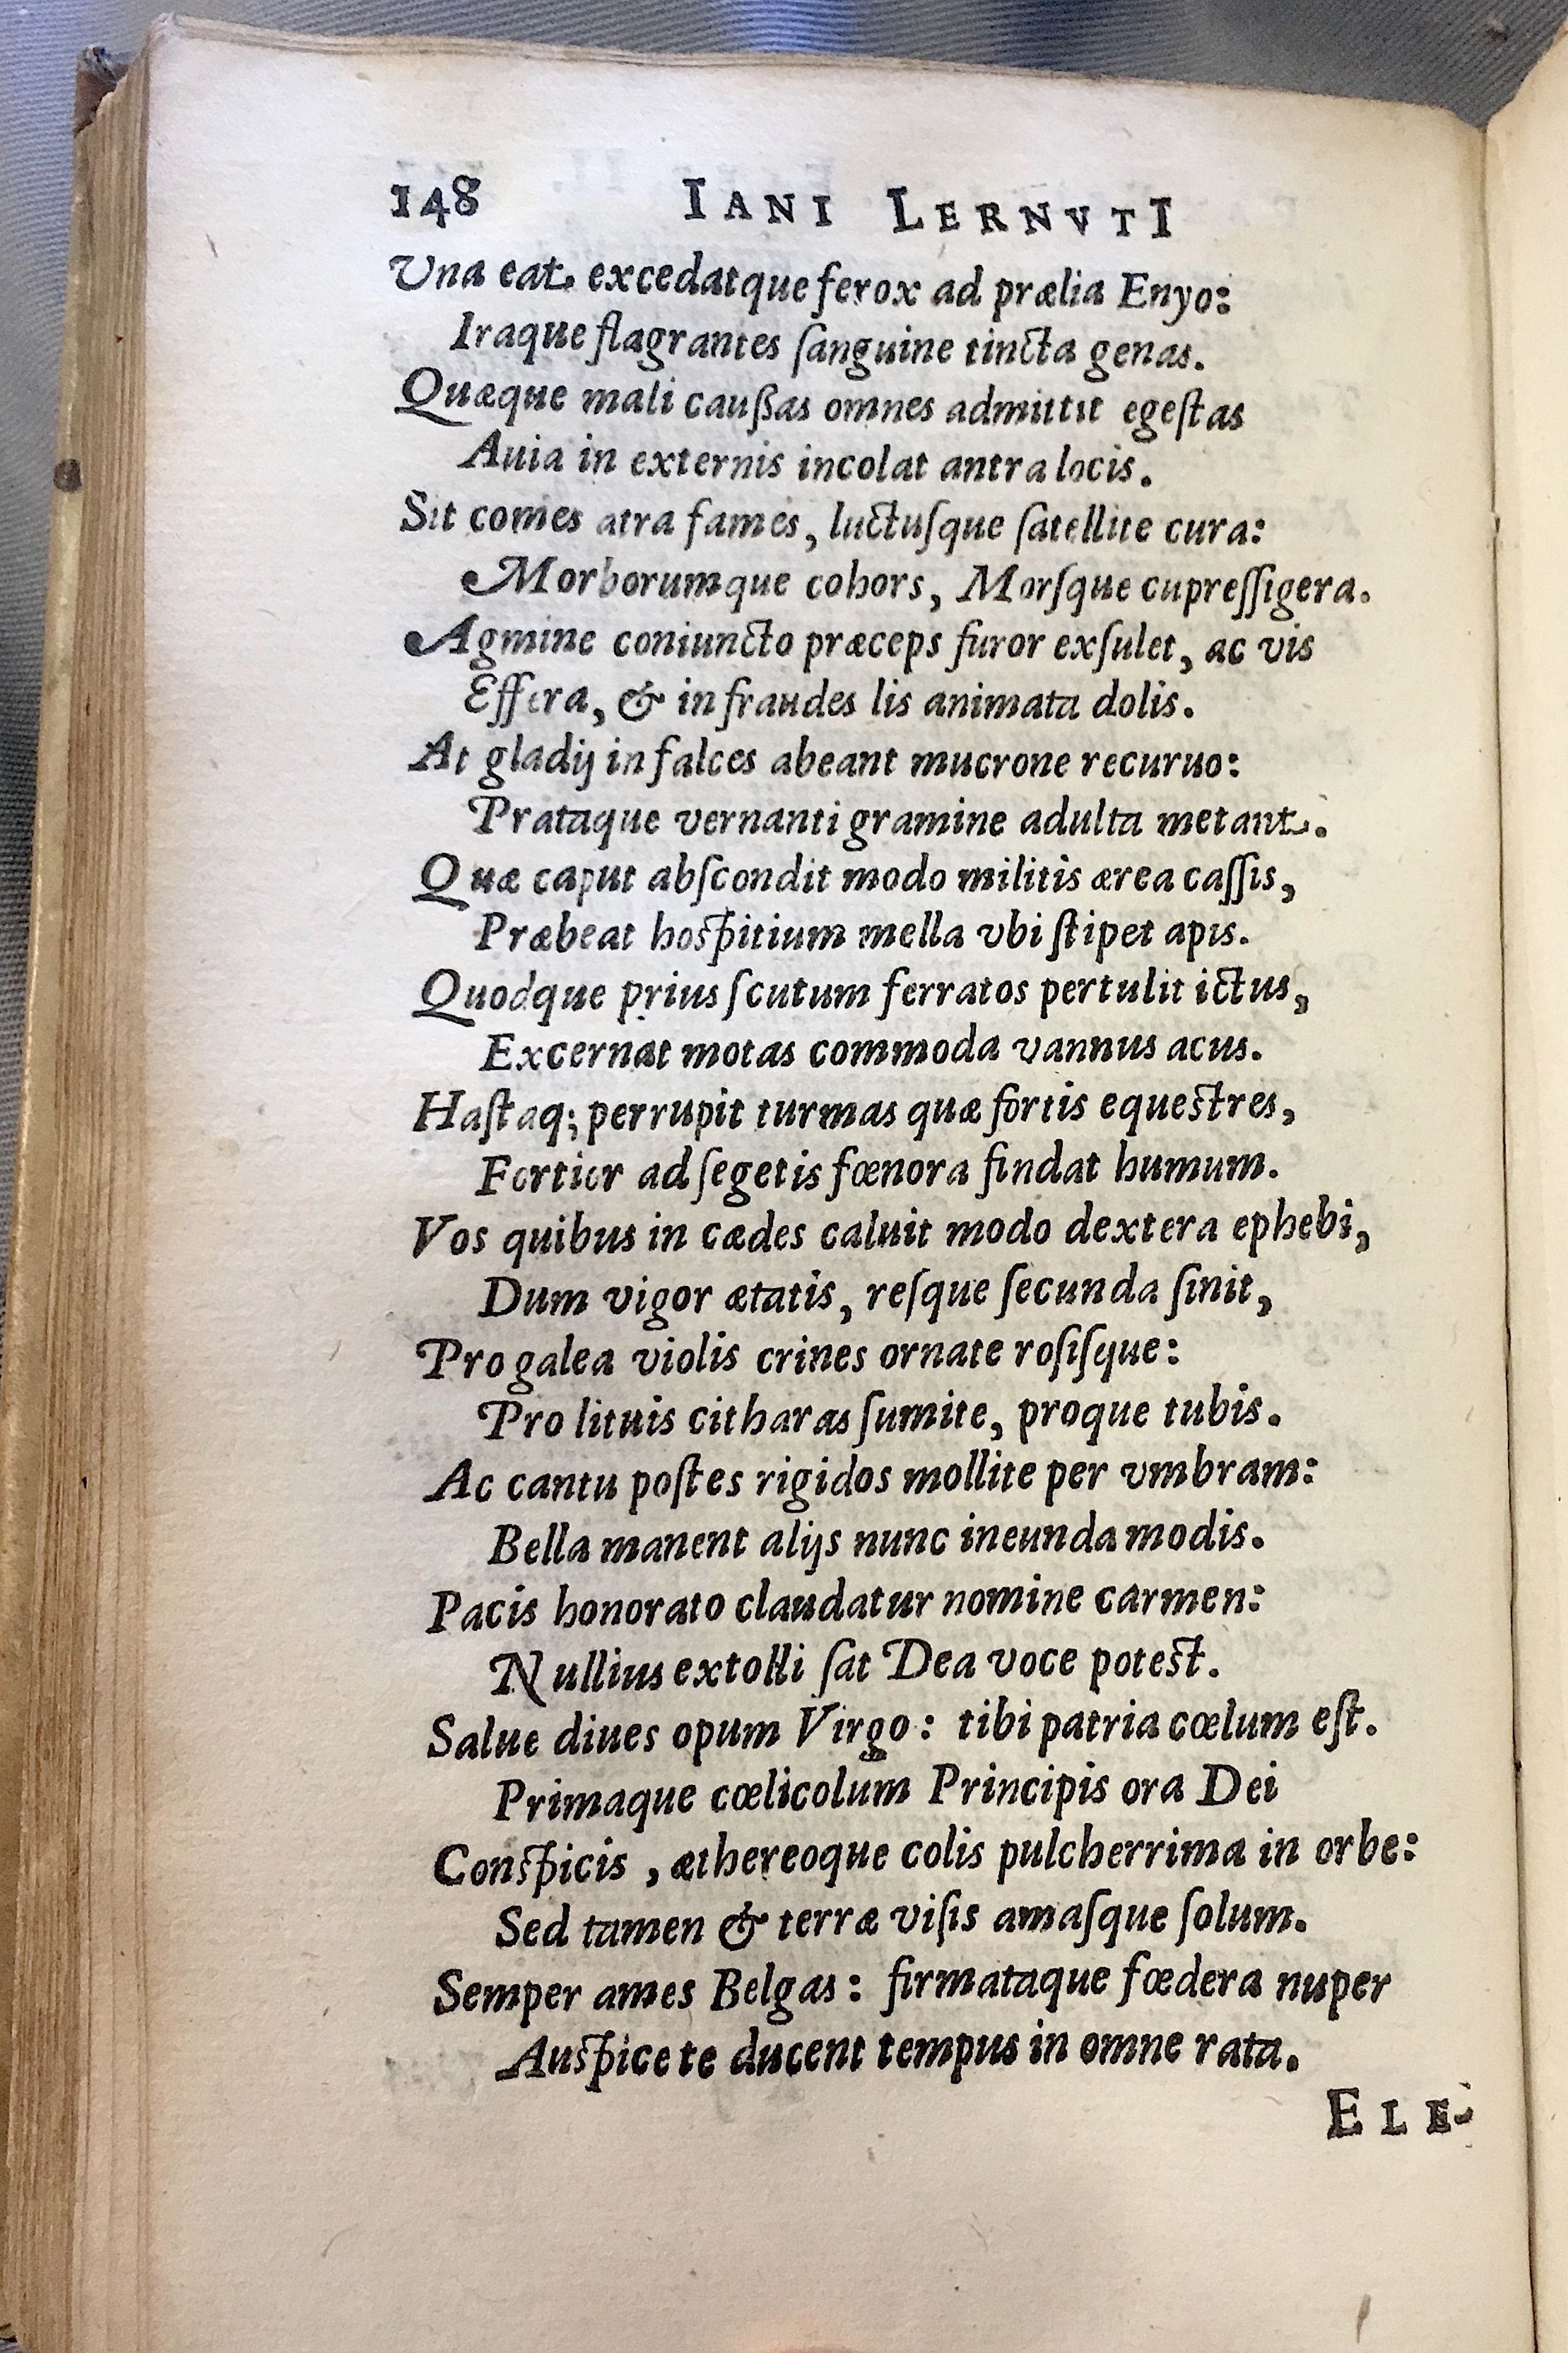 148 IANI LERNVTI
Vna eat excedatque ferox ad prælia Enyo:
Iraque flagrantes ſanguine tincta genas.
Quæque mali cauſſas omnes admittit egeſtas
Auia in externis incolat antra locis.
Sit comes atra fames, luctuſque ſatellite cura:
Morborumque cohors, Morſque cupreſſigera.
Agmine coniuncto præceps furor exſulet, ac vis
Effera, & in fraudes lis animata dolis.
At gladij in falces abeant mucrone recuruo:
Prataque vernanti gramine adulta metant.
Quæ caput abſcondit modo militis ærea caſſis,
Præbeat hoſpitium mella vbi ſtipet apis.
Quodque prius ſcutum ferratos pertulit ictus,
Excernat motas commoda vannus acus.
Haſtaq; perrupit turmas quæ fortis equeſtres,
Fortior ad ſegetis fœnora findat humum.
Vos quibus in cædes caluit modo dextera ephebi,
Dum vigor ætatis, reſque ſecunda ſinit,
Pro galea violis crines ornate roſiſque:
Pro lituis citharas ſumite, proque tubis.
Ac cantu poſtes rigidos mollite per vmbram:
Bella manent alijs nunc ineunda modis.
Pacis honorato claudatur nomine carmen:
Nullius extolli ſat Dea voce poteſt.
Salue diues opum Virgo: tibi patria cœlum eſt.
Primaque cœlicolum Principis ora Dei
Conſpicis, æthereoque colis pulcherrima in orbe:
Sed tamen & terræ viſis amaſque ſolum.
Semper ames Belgas: firmataque fœdera nuper
Auſpice te ducent tempus in omne rata.
ELE-